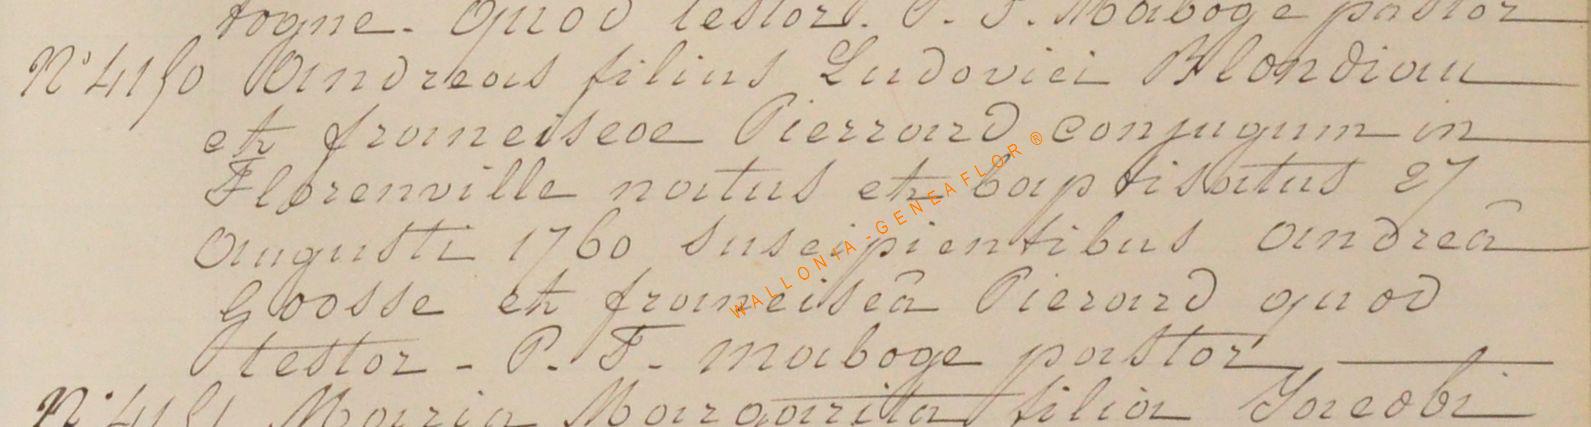 togne - quod testor. P. F. Maboge pastor
N° 4150 Andreas filius Ludovici Blondiau
et franciscae Pierrard conjugum in
Florenville natus et baptisatus 27
Augusti 1760 suscipientibus andreâ
Goosse et franciscâ Pierard quod
testor - P. F. Maboge pastor
N° 4151 Maria Margarita filia Jacobi
WALLONIA - GENEAFLOR ®